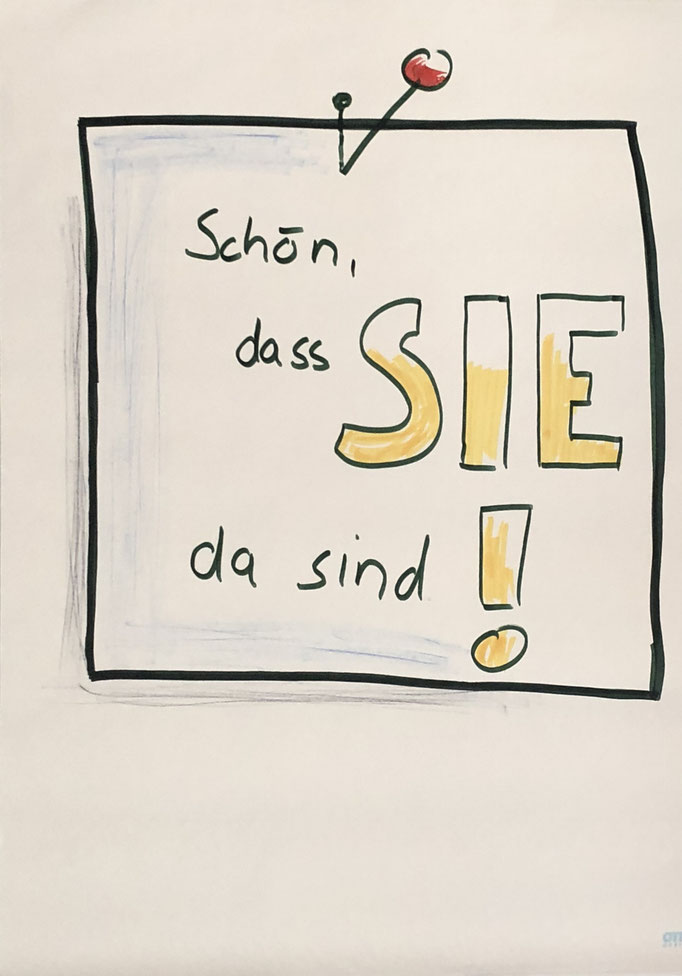 Schön,
dass SIE
da sind!